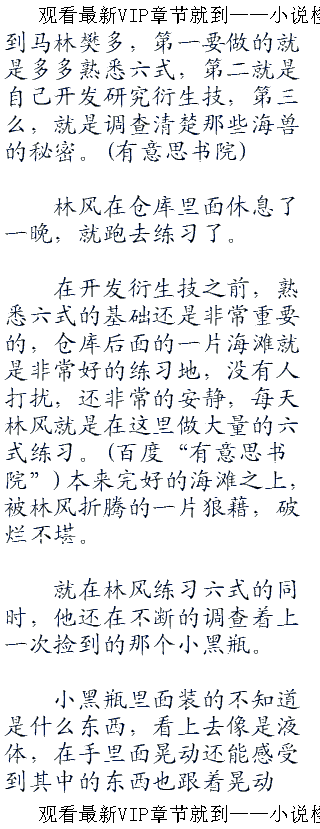 观看最新VIP章节就到——小说
到马林樊多，第一要做的就
是多多熟悉六式，第二就是
自己开发研究衍生技，第三
么，就是调查清楚那些海兽
的秘密。(有意思书院)
林风在仓库里面休息了
一晚，就跑去练习了。
在开发衍生技之前，熟
悉六式的基础还是非常重要
的，仓库后面的一片海滩就
是非常好的练习地，没有人
打扰，还非常的安静，每天
林风就是在这里做大量的六
式练习。(百度“有意思书
院”)本来完好的海滩之上，
被林风折腾的一片狼藉，破
烂不堪。
就在林风练习六式的同
时，他还在不断的调查着上
一次捡到的那个小黑瓶。
小黑瓶里面装的不知道
是什么东西，看上去像是液
体，在手里面晃动还能感受
到其中的东西也跟着晃动
观看最新VIP章节就到——小说